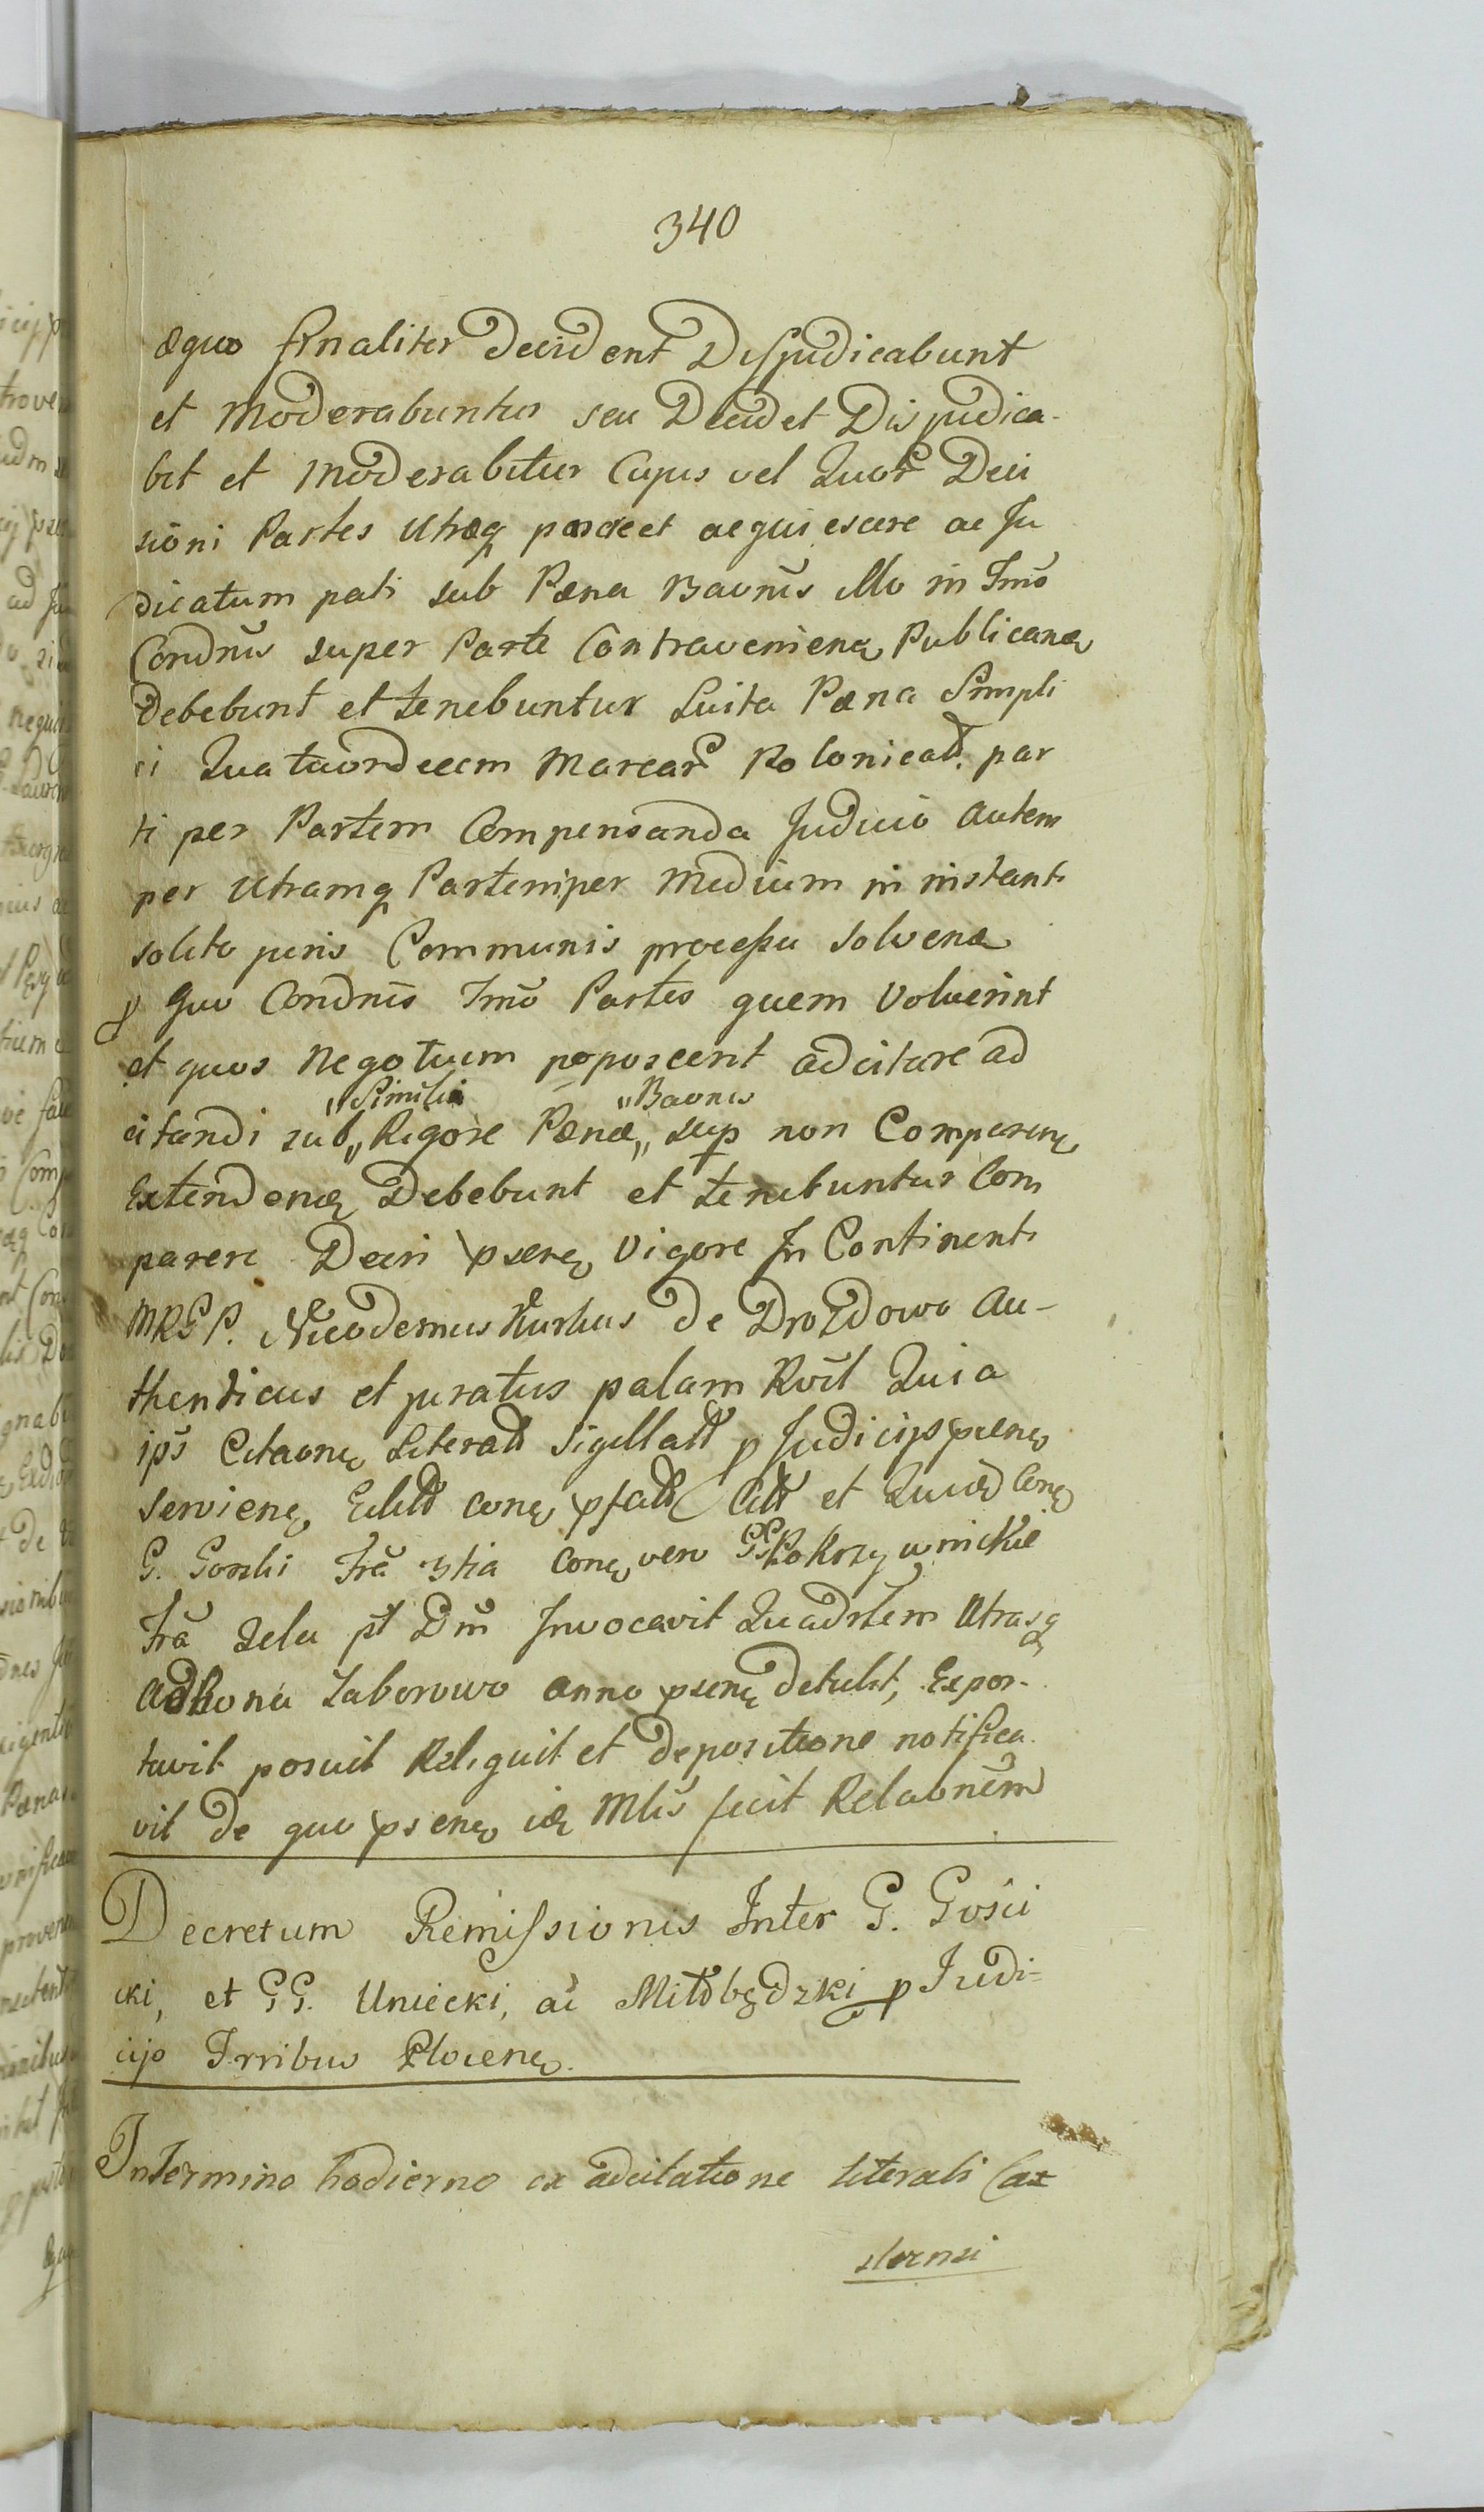 340
æquo finaliter Decident Dijudicabunt
et Moderabuntur seu Decidet Dijudica-
bit et Moderabitur Cujus vel Quor Deci
sioni Partes Utræq parere et acquiescere ac Ju
dicatum pati sub Pæna Baonis illo in Tmo
Condnis super Parte Contraveniena Publicana
Debebunt et tenebuntur Luita Pæna Simpli
ci Quatuordecem Marcar Polonical. par
ti per Partem Compensanda Judicio autem
per Utramq Partem per Medium in instanti
solito juris Communis processu solvena
p Quo Condnis Tmo Partes quem Voluerint
et quos Negotium poposcerit adcitare ad
"Similia "Baonis
citandi sub " Rigore Pænæ " sup non Comparena
Extendena Debebunt et tenebuntur Com
parere Decri psens Vigore In Continenti
MRGP. Nicodemus Kurkus de Drozdowo Au-
thenticus et juratus palam Rvit Quia
ips Citaone Literall Sigillatt p Judicijs psens
serviens Edittt cone psatt Citt et Quidem cone
G. Gorski Fra 3tia cone vero GG Pokrzywnickie
Fra Zelu pt Dm Invocavit Quadrlem Utrasq
ad Bona Zaborowo anno psens detulit, Expor-
tavit posuit Reliquit et depositione notifica
vit de quo psens ide Mlis fecit Relaonem
Decretum Remissionis Inter G. Gości
cki, et GG. Uniecki, ac Miłobędzki p Judi=
cijs Trribus Plocens.
In termino hodierno ex adcitatione literali Ca
strensi